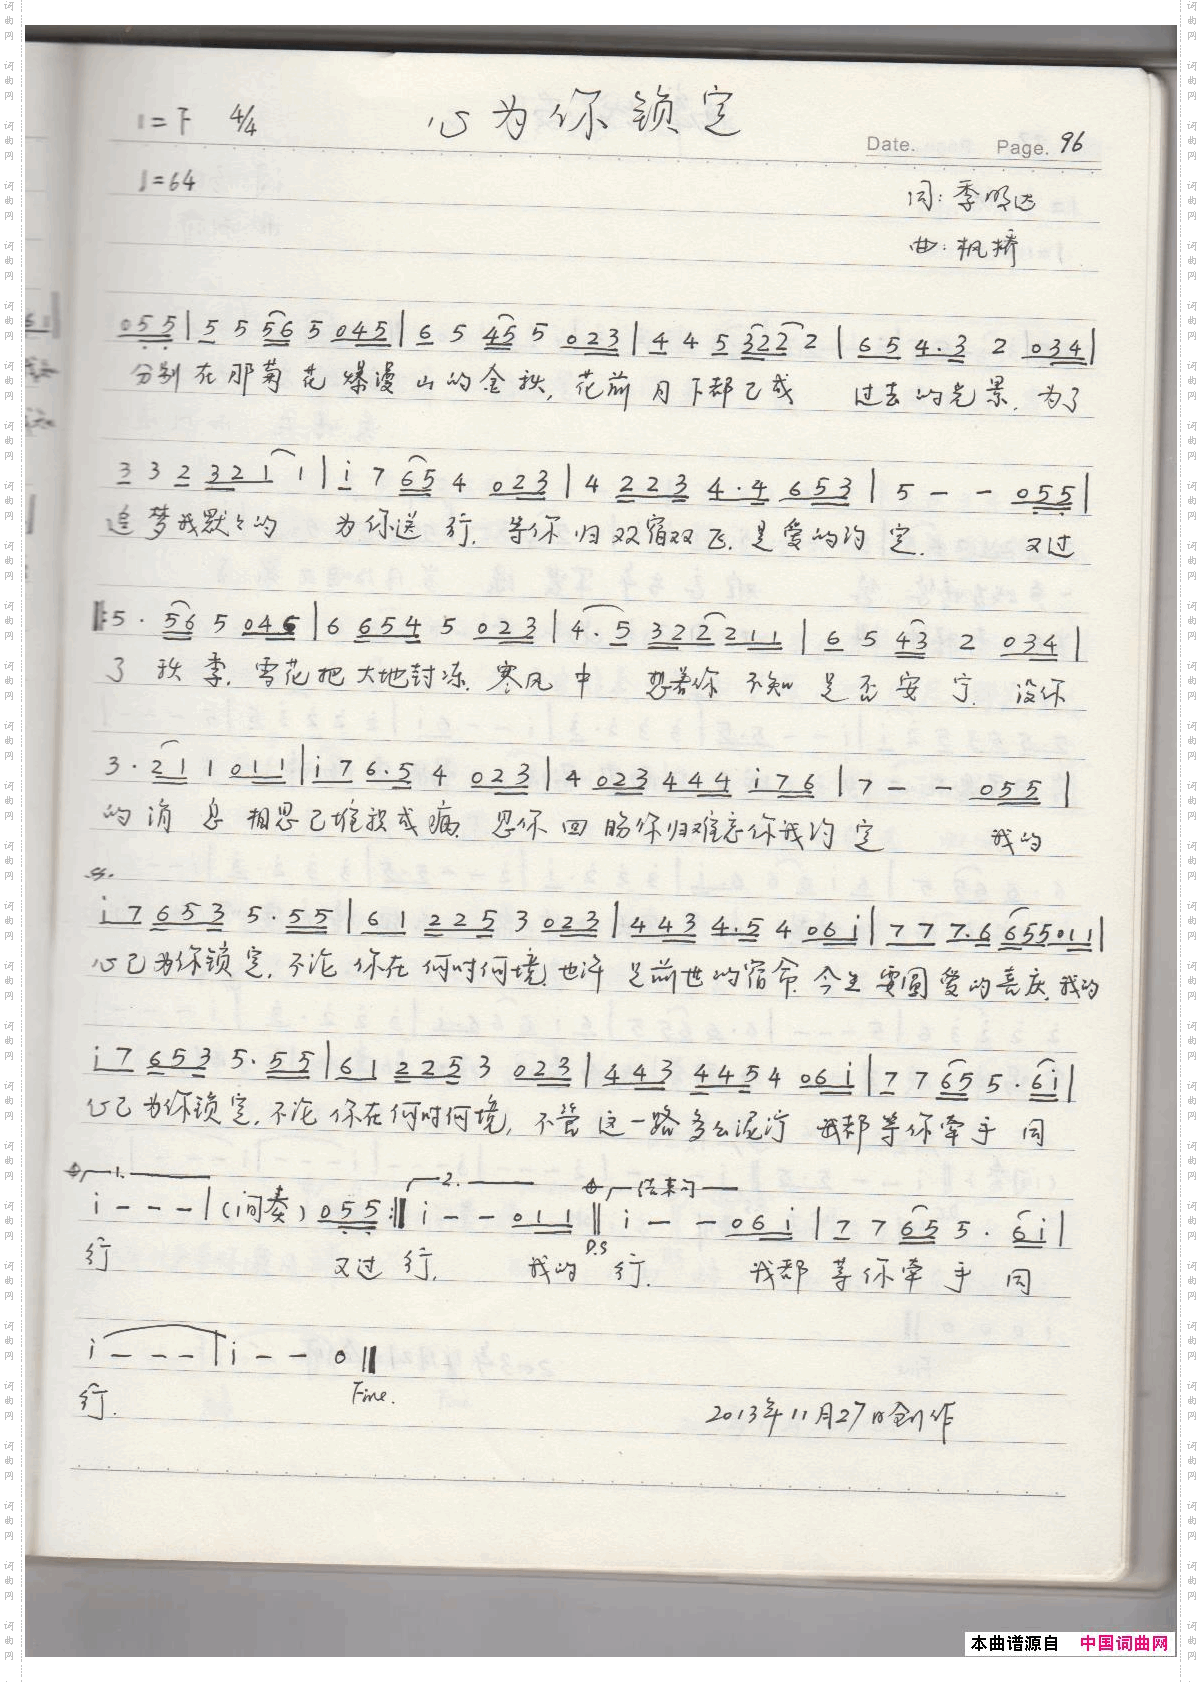 心为你锁定
1=F 4/4
Date. Page. 96
♩=64
词:季明达
曲:枫桥
055|5 5 56 5 045|6 5 45 5 023|4 4 5 3222 2|65 4.3 2 034|
分别在那菊花爆漫山的金秋,花前月下都已成 过去的光景,为了
3 3 2 321 1|i 7 65 4 023|4 223 4.4 653|5 - - 055|
追梦我默々的 为你送行,等你归双宿双飞,是爱的约定. 又过
5. 56 5 046|6 654 5 023|4.5 322211|6 5 43 2 034|
了秋季,雪花把大地封冻,寒风中 想着你不知是否安宁.没你
3. 21 1 011|i 7 6.5 4 023|4 023 444 i76|7 - - 055|
的消息相思已堆积成病,思你回盼你归难忘你我约定 我的
i7 653 5.55|61 225 3 023|443 4.5 4 06i|77 7.6 655011|
心已为你锁定,不论你在何时何境,也许是前世的宿命,今生要圆爱的喜庆,我的
i7 653 5.55|61 225 3 023|443 445 4 06i|7 7 65 5. 6i|
心已为你锁定,不论你在何时何境,不管这一路多么泥泞 我都等你牵手同
1. 2. 结束句
i - - -|(间奏) 055:‖i - - 011‖i - - 06i|7 7 65 5. 6i|
D.S
行 又过行, 我的行. 我都等你牵手同
i - - -|i - - 0‖
行. Fine.
2013年11月27日创作
本曲谱源自 中国词曲网